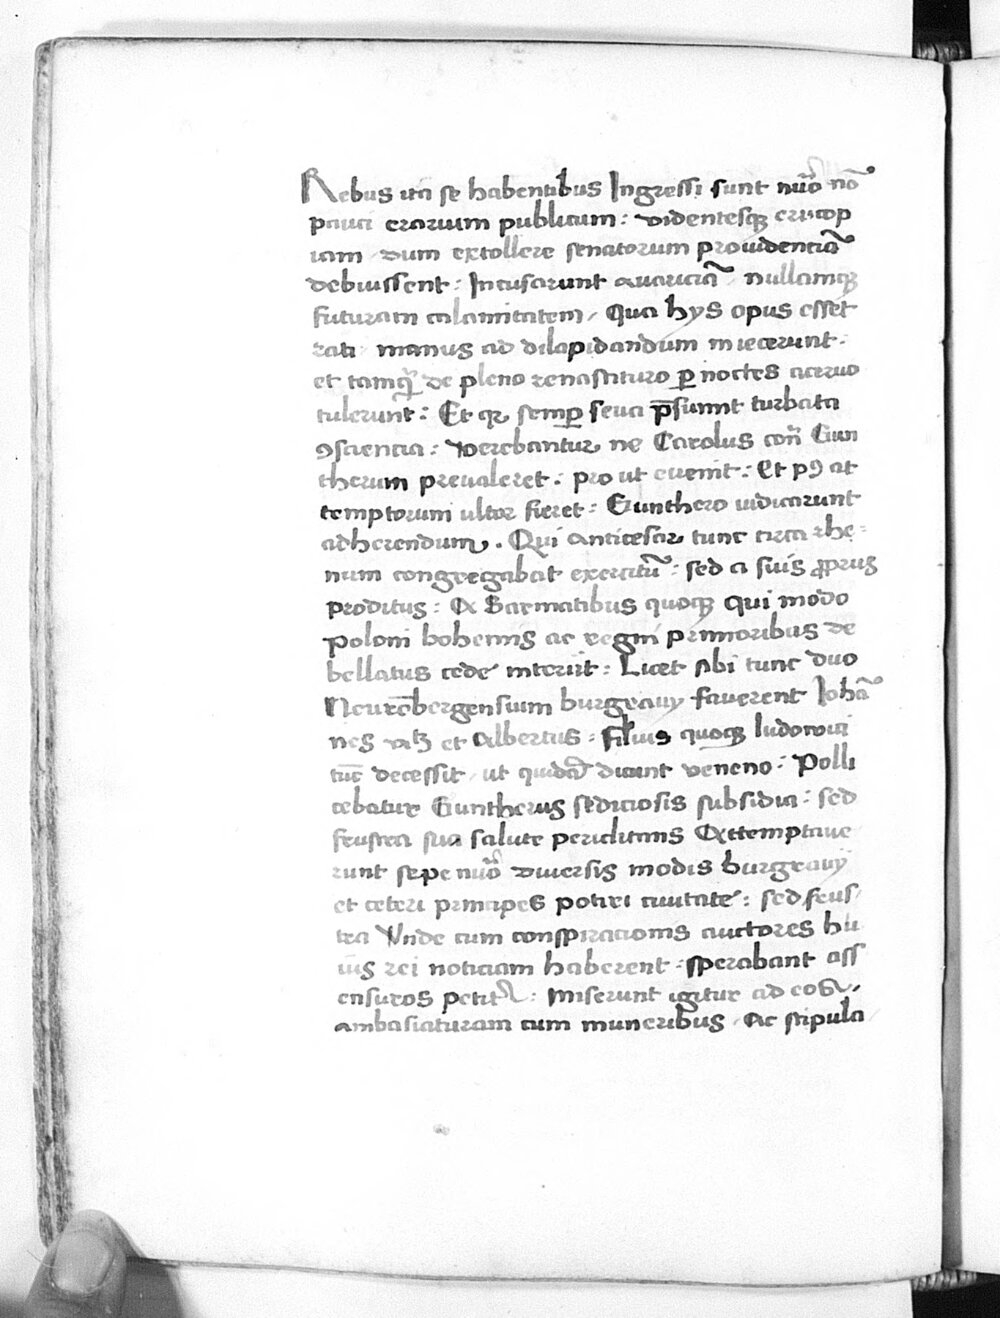 Rebus ita se habentibus Ingressi sunt nūo nō
pauci erarium publicum : videntesqꝫ eru cop
iam / dum extollere senatorum prouidenciā
debuissent : Incusarunt auariciā / nullamqꝫ
futuram calamitatem / Qua hys opus esset
rati / manus ad dilapidandum miecerunt ·
et tamqꝫ de pleno renastituro ꝑ noctes aceruo
tulerunt : Et qꝛ semꝑ seua p̄sumit turbata
ꝯsciencia : Verebantur ne Carolus con̄ Gun
therum preualeret : pro ut euenit : Et pꝯ at
temptorum ultor fieret : Gunthero iudicarunt
adherendum . Qui anticesar tunc circa rhe-
num congregabat exercitū : sed a suis ꝓprius
proditus : A Sarmatibus quoqꝫ qui modo
poloni bohemis ac regni primoribus de
bellatus cede interiit : Licet sibi tunc duo
Neurēbergensium burgrauy fauerent Iohā
nes et Albertus : filius quoqꝫ ludowici
tūc decessit / ut quidā dicunt veneno : Polli
cebatur Guntherus sediciosis subsidia : sed
frustra sua salute periclitans Attemptaue
runt sepe nūo diuersis modis burgrauy
et ceteri principes potiri ciuitate : sed frus
tra Unde cum conspiracionis auctores hu
ius rei noticiam haberent : sperabant ass
ensuros petitꝭ : Miserunt igitur ad eosꝺ /
ambasiaturam cum muneribus / Ac stipula